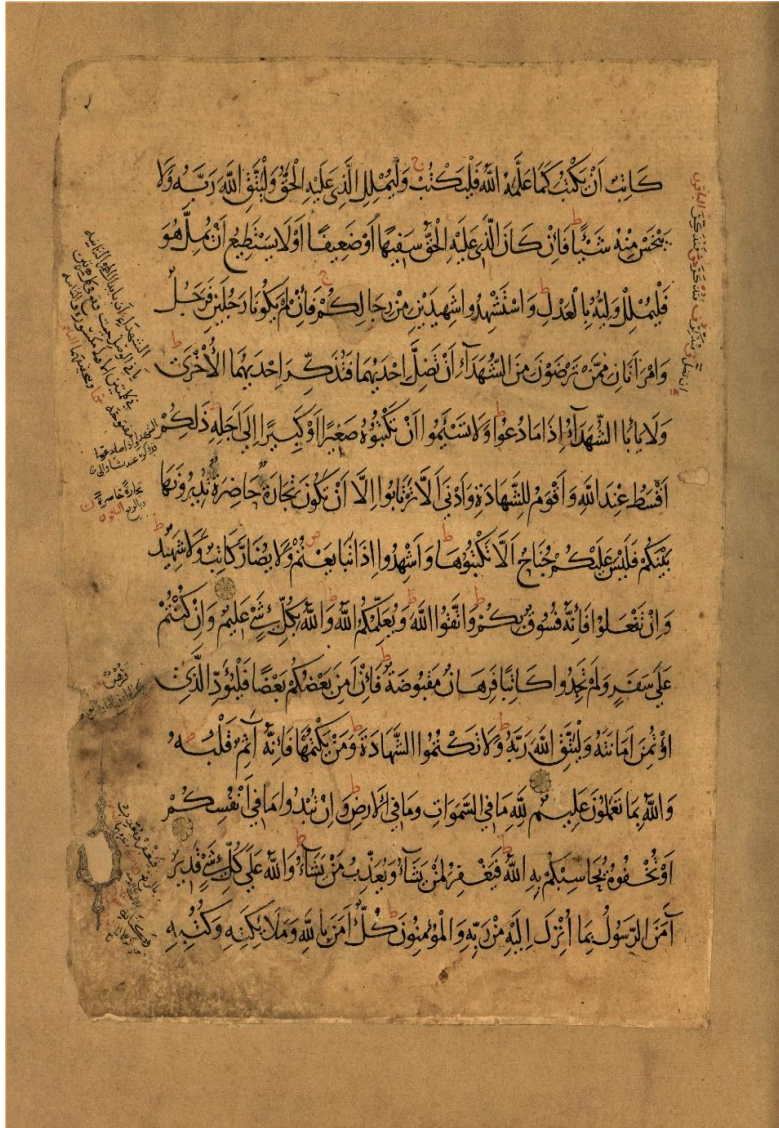 كَاتِبٌ اَنْ يَكْتُبَ كَمَا عَلَّمَهُ اللّٰهُ فَلْيَكْتُبْ وَلْيُمْلِلِ الَّذِي عَلَيْهِ الْحَقُّ وَلْيَتَّقِ اللّٰهَ رَبَّهُ وَلَا
يَبْخَسْ مِنْهُ شَيْئًا فَاِنْ كَانَ الَّذِي عَلَيْهِ الْحَقُّ سَفِيهًا اَوْ ضَعِيفًا اَوْ لَا يَسْتَطِيعُ اَنْ يُمِلَّ هُوَ
فَلْيُمْلِلْ وَلِيُّهُ بِالْعَدْلِ وَاسْتَشْهِدُوا شَهِيدَيْنِ مِنْ رِجَالِكُمْ فَاِنْ لَمْ يَكُونَا رَجُلَيْنِ فَرَجُلٌ
وَامْرَاَتَانِ مِمَّنْ تَرْضَوْنَ مِنَ الشُّهَدَاءِ اَنْ تَضِلَّ اِحْدَيهُمَا فَتُذَكِّرَ اِحْدَيهُمَا الْاُخْرَى
وَلَا يَابَا الشُّهَدَاءُ اِذَا مَا دُعُوا وَلَا تَسْئَمُوا اَنْ تَكْتُبُوهُ صَغِيرًا اَوْ كَبِيرًا اِلَى اَجَلِهِ ذَلِكُمْ
اَقْسَطُ عِنْدَ اللّٰهِ وَاَقْوَمُ لِلشَّهَادَةِ وَاَدْنَى اَلَّا تَرْتَابُوا اِلَّا اَنْ تَكُونَ تِجَارَةً حَاضِرَةً تُدِيرُونَهَا
بَيْنَكُمْ فَلَيْسَ عَلَيْكُمْ جُنَاحٌ اَلَّا تَكْتُبُوهَا وَاَشْهِدُوا اِذَا تَبَايَعْتُمْ وَلَا يُضَارَّ كَاتِبٌ وَلَا شَهِيدٌ
وَاِنْ تَفْعَلُوا فَاِنَّهُ فُسُوقٌ بِكُمْ وَاتَّقُوا اللّٰهَ وَيُعَلِّمُكُمُ اللّٰهُ وَاللّٰهُ بِكُلِّ شَيْءٍ عَلِيمٌ وَاِنْ كُنْتُمْ
عَلَى سَفَرٍ وَلَمْ تَجِدُوا كَاتِبًا فَرِهَانٌ مَقْبُوضَةٌ فَاِنْ اَمِنَ بَعْضُكُمْ بَعْضًا فَلْيُؤَدِّ الَّذِي
اؤْتُمِنَ اَمَانَتَهُ وَلْيَتَّقِ اللّٰهَ رَبَّهُ وَلَا تَكْتُمُوا الشَّهَادَةَ وَمَنْ يَكْتُمْهَا فَاِنَّهُ آثِمٌ قَلْبُهُ
وَاللّٰهُ بِمَا تَعْمَلُونَ عَلِيمٌ لِلّٰهِ مَا فِي السَّمَوَاتِ وَمَا فِي الْاَرْضِ وَاِنْ تُبْدُوا مَا فِي اَنْفُسِكُمْ
اَوْ تُخْفُوهُ يُحَاسِبْكُمْ بِهِ اللّٰهُ فَيَغْفِرُ لِمَنْ يَشَاءُ وَيُعَذِّبُ مَنْ يَشَاءُ وَاللّٰهُ عَلَى كُلِّ شَيْءٍ قَدِيرٌ
آمَنَ الرَّسُولُ بِمَا اُنْزِلَ اِلَيْهِ مِنْ رَبِّهِ وَالْمُؤْمِنُونَ كُلٌّ اٰمَنَ بِاللّٰهِ وَمَلَائِكَتِهِ وَكُتُبِهِ
تجارة حاضرة